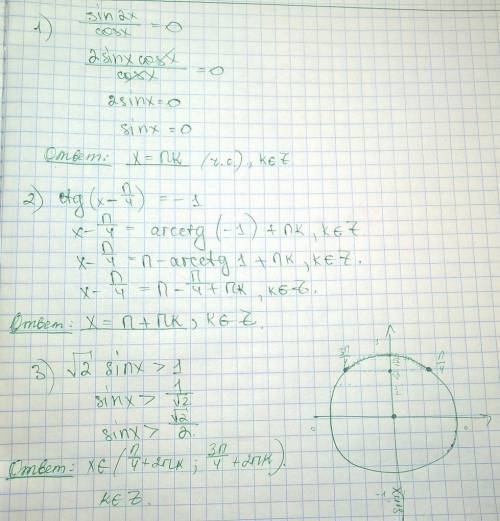 1) sin2x/cosx = 0
2sinx cosx/cosx = 0
2sinx = 0
sinx = 0
Ответ: x = πк (ч.с.), к∈Z
2) ctg(x - π/4) = -1
x - π/4 = arcctg(-1) + πк, к∈Z
x - π/4 = π - arcctg 1 + πк, к∈Z.
x - π/4 = π - π/4 + πк, к∈Z.
Ответ: x = π + πк, к∈Z.
3) √2 sinx > 1
sinx > 1/√2
sinx > √2/2
Ответ: x∈(π/4 + 2πк; 3π/4 + 2πк).
к∈Z.
3π/4
π/4
1
0
0
-1
sinx